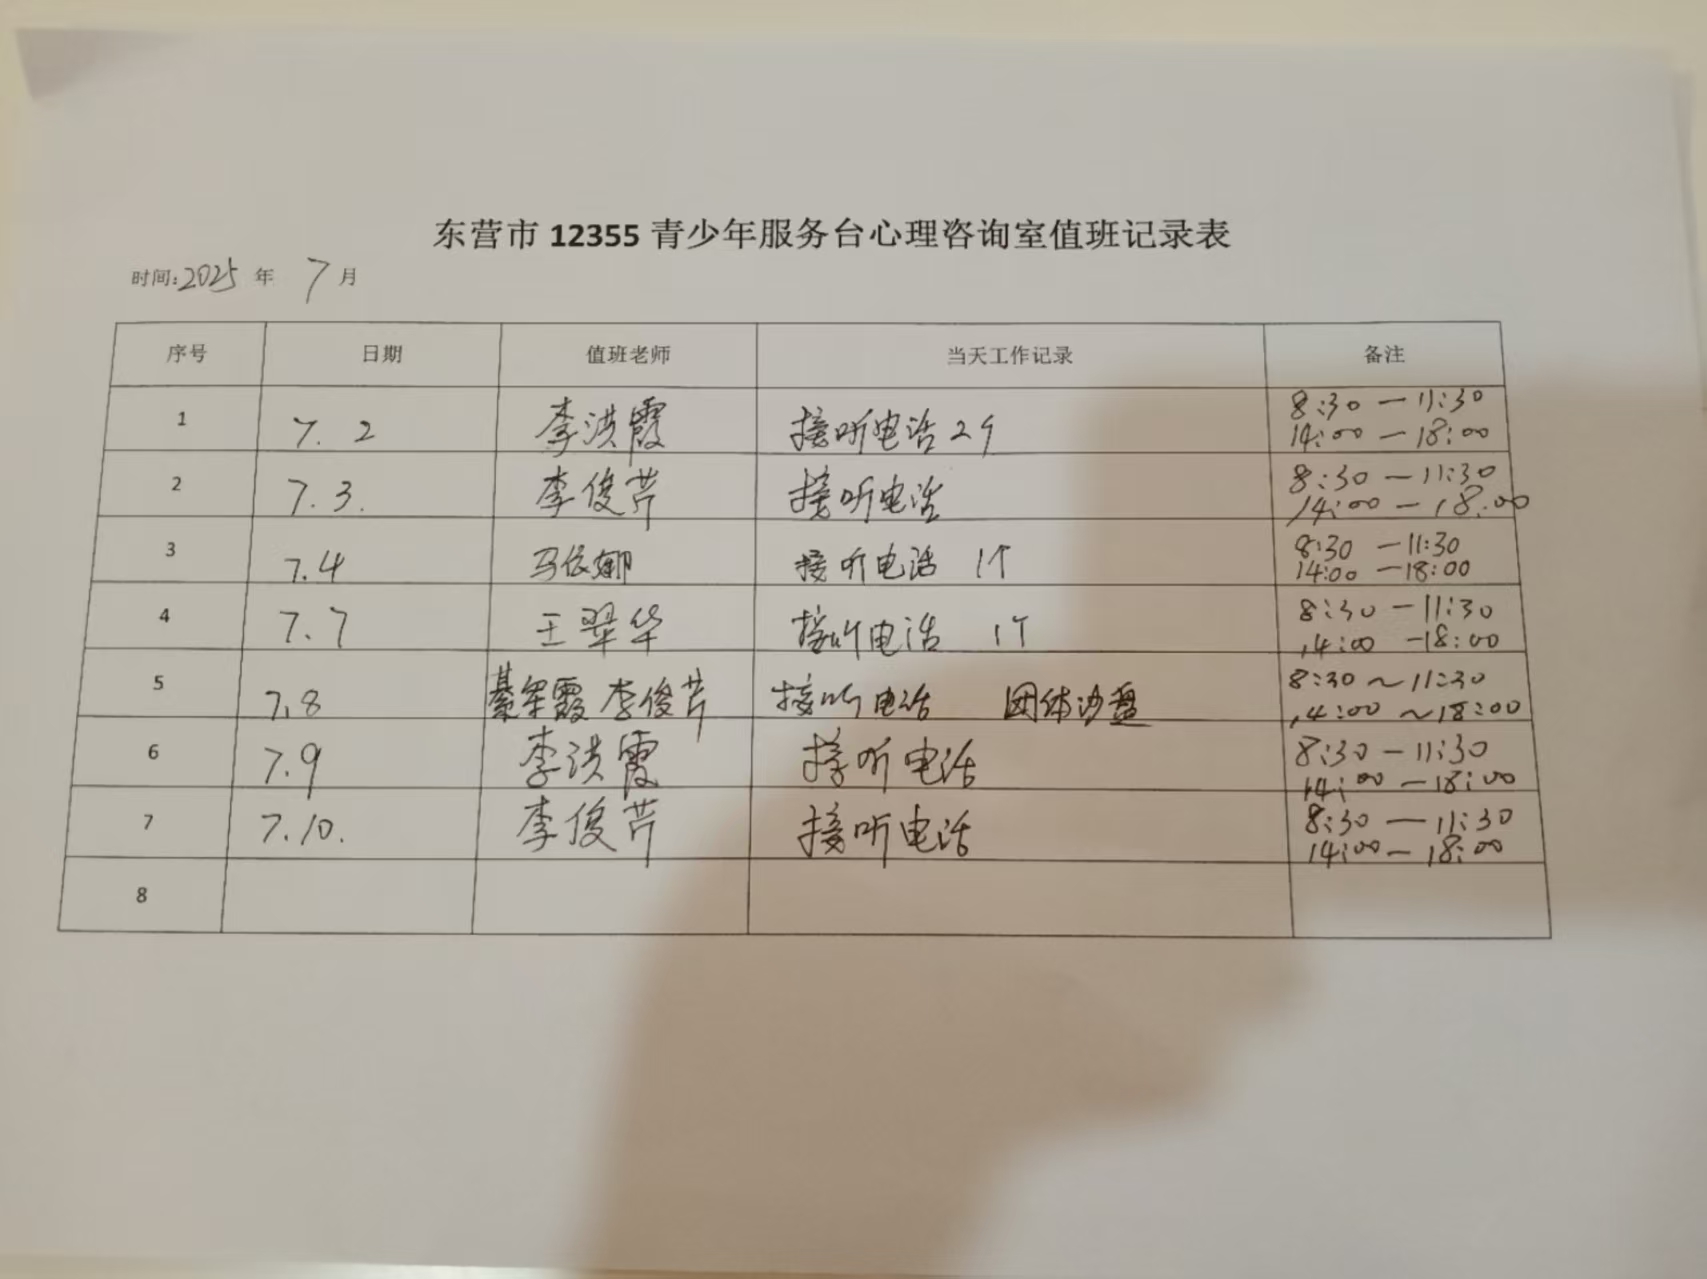 东营市 12355 青少年服务台心理咨询室值班记录表
时间:2025 年 7 月
序号 日期 值班老师 当天工作记录 备注
1 7.2 李洪霞 接听电话 2个 8:30—11:30
14:00—18:00
2 7.3. 李俊芹 接听电话 8:30—11:30
14:00—18:00
3 7.4 马依娜 接听电话 1个 8:30—11:30
14:00—18:00
4 7.7 王翠华 接听电话 1个 8:30—11:30
14:00—18:00
5 7.8 綦军霞 李俊芹 接听电话 团体沙盘 8:30～11:30
14:00～18:00
6 7.9 李洪霞 接听电话 8:30—11:30
14:00—18:00
7 7.10. 李俊芹 接听电话 8:30—11:30
14:00—18:00
8